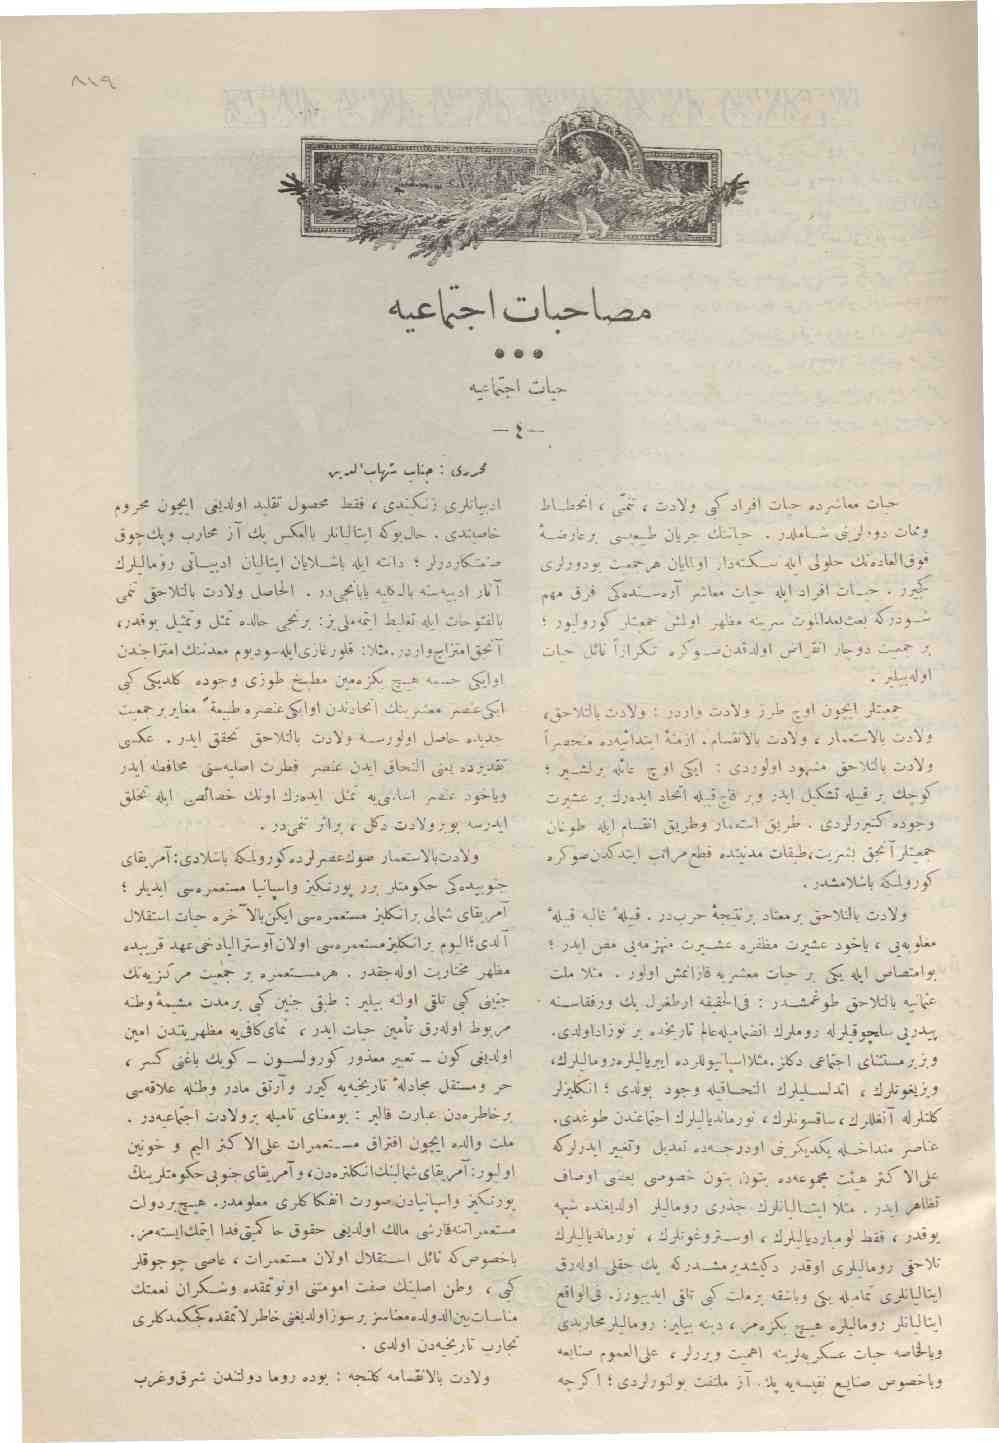 ٨١٩
مصاحبات اجتماعيه
حيات اجتماعيه
— ٤ —
محررى : جناب شهاب‌الدين
حيات معاشرده حيات افراد كبى ولادت ، تنمّى ، انحطاط
وممات دوره‌لرينى شاملدر . حياتنك جريان طبيعيسى برعارضهٔ
فوق‌العاده‌نك حلولى ايله سكته‌دار اولمايان هرجمعيت بودورلرى
كچيرر . حيات افراد ايله حيات معاشر آره‌سنده‌كى فرق مهم
شودركه بعث‌بعدالموت سرينه مظهر اولمش جمعيتلر كورولیور ؛
بر جمعيت دوچار انقراض اولدقدن‌صوكره تكراراً نائل حيات
اوله‌بيلير .
جمعيتلر ايچون اوچ طرز ولادت واردر : ولادت بالتلاحق،
ولادت بالاستعمار ، ولادت بالانقسام . ازمنهٔ ابتدائيه‌ده منحصراً
ولادت بالتلاحق مشهود اولوردى : ايكى اوچ عائله برلشير ؛
كوچك بر قبيله تشكيل ايدر وبر قاچ‌قبيله اتحاد ايده‌رك بر عشيرت
وجوده كتيررلردى . طريق استعمار وطريق انقسام ايله طوغان
جمعيتلر آنجق بشريت،طبقات مدنيتده قطع‌مراتب ايتدكدن‌صوكره
كورولمكه باشلامشدر .
ولادت بالتلاحق برمعتاد برنتيجهٔ حرب‌در . قبيلهٔ غالبه قبيلهٔ
مغلوبه‌يى ، ياخود عشيرت مظفره عشيرت منهزمه‌يى مص ايدر ؛
بوامتصاص ايله يكى بر حيات معشريه قازانمش اولور . مثلا ملت
عثمانيه بالتلاحق طوغمشدر : فى‌الحقيقه ارطغرل بك ورفقاسنه
پيدرپى سلچوقيلرله روملرك انضماميله‌عالم تاريخده بر نوزاداولدى.
وبزبرمستثناى اجتماعى دكلز.مثلااسپانيولرده ايبريالیلرله‌رومالیلرك،
ويزيغوتلرك ، اندلسليلرك التحاقيله وجود بولدى ؛ انكليزلر
كلتلرله آنغللرك،ساقسونلرك ، نورمانديالیلرك اجتماعندن طوغدى.
عناصر متداخله يكديكرينى اودرجه‌ده تعديل وتغيير ايدرلركه
على‌الاكثر هيئت مجموعه‌ده بتون بتون خصوصى بعضى اوصاف
تظاهر ايدر . مثلا ايتاليانلرك جذرى رومالیلر اولديغنده شبهه
يوقدر ، فقط لومبارديالیلرك ، اوستروغوتلرك ، نورمانديالیلرك
تلاحقى رومالیلرى اوقدر دكيشديرمشدركه پك حقلى اوله‌رق
ايتاليانلرى تماميله يكى وباشقه برملت كبى تلقى ايدييورز. فى‌الواقع
ايتاليانلر رومالیلره هيچ بكزه‌مز ، دينه بيلير: رومالیلر محاربدى
وبالخاصه حيات عسكريه‌لرينه اهميت ويررلر ، على‌العموم صنايعه
وباخصوص صنايع نفيسه‌يه پك آز ملتفت بولنورلردى ؛ اكرچه
ادبياتلرى زنكيندى ، فقط محصول تقليد اولديغى ايچون محروم
خاصه‌ندى . حال‌بوكه ايتاليانلر بالعكس پك آز محارب وپك‌چوق
صنعتكاردرلر ؛ دانته ايله باشلايان ايتاليان ادبياتى رومالیلرك
آثار ادبيه‌سنه بالكليه يابانجى‌در . الحاصل ولادت بالتلاحقى تنمى
بالفتوحات ايله تغليط ايتمه‌ملى‌يز: برنجى حالده تمثل وتمثيل يوقدر،
آنجق‌امتزاج‌واردر.مثلا: قلورغازى‌ايله‌سوديوم معدننك امتزاجندن
اوايكى جسمه هيچ بكزه‌مين مطبخ طوزى وجوده كلديكى كبى
ايكى‌عنصر معشرينك اتحادندن اوايكى‌عنصره طبيعةً مغاير برجمعيت
جديده حاصل اولورسه ولادت بالتلاحق تحقق ايدر . عكسى
تقديرده يعنى التحاق ايدن عنصر فطرت اصليه‌سنى محافظه ايدر
وياخود عنصر اساسى‌يه تمثل ايده‌رك اونك خصائصى ايله تخلق
ايدرسه بوبرولادت دكل ، براثر تنمى‌در .
ولادت‌بالاستعمار صوك‌عصرلرده‌كورولمكه باشلادى: آمريقاى
جنوبيده‌كى حكومتلر برر پورتكيز واسپانيا مستعمره‌سى ايديلر ؛
آمريقاى شمالى برانكليز مستعمره‌سى ايكن‌بالآخره حيات استقلال
آلدى؛اليوم برانكليزمستعمره‌سى اولان‌آوستراليادخى‌عهد قريبده
مظهر مختاريت اوله‌جقدر . هرمستعمره بر جمعيت مركزيه‌نك
جنينى كبى تلقى اولنه بيلير : طبقى جنين كبى برمدت مشيمهٔ وطنه
مربوط اوله‌رق تأمين حيات ايدر ، نماى‌كافى‌يه مظهريتدن امين
اولديغى كون ــ تعبير معذور كورولسون ــ كوبك باغنى كسر ،
حر ومستقل مجادلهٔ تاريخيه‌يه كيرر وآرتق مادر وطنله علاقه‌سى
برخاطره‌دن عبارت قالير : بومعناى تاميله برولادت اجتماعيه‌در .
ملت والده ايچون افتراق مستعمرات على‌الاكثر اليم و خونين
اوليور: آمريقاى شمالينك‌انكلتره‌دن، وآمريقاى جنوبى حكومتلرينك
پورتكيز واسپانيادن‌صورت انفكاكلرى معلومدر. هيچ‌بردولت
مستعمراتنه‌قارشى مالك اولديغى حقوق حاكميتى‌فدا ايتمك‌ايسته‌مز.
باخصوص‌كه نائل استقلال اولان مستعمرات ، عاصى چوجوقلر
كبى ، وطن اصلينك صفت امومتنى اونوتمقده وشكران نعمتك
مناسبات‌بين‌الدولده‌معناسز برسوزاولديغنى خاطرلاتمقده‌كجكمدكلرى
تجارب تاريخيه‌دن اولدى .
ولادت بالانقسامه كلنجه : بوده روما دولتندن شرق‌وغرب